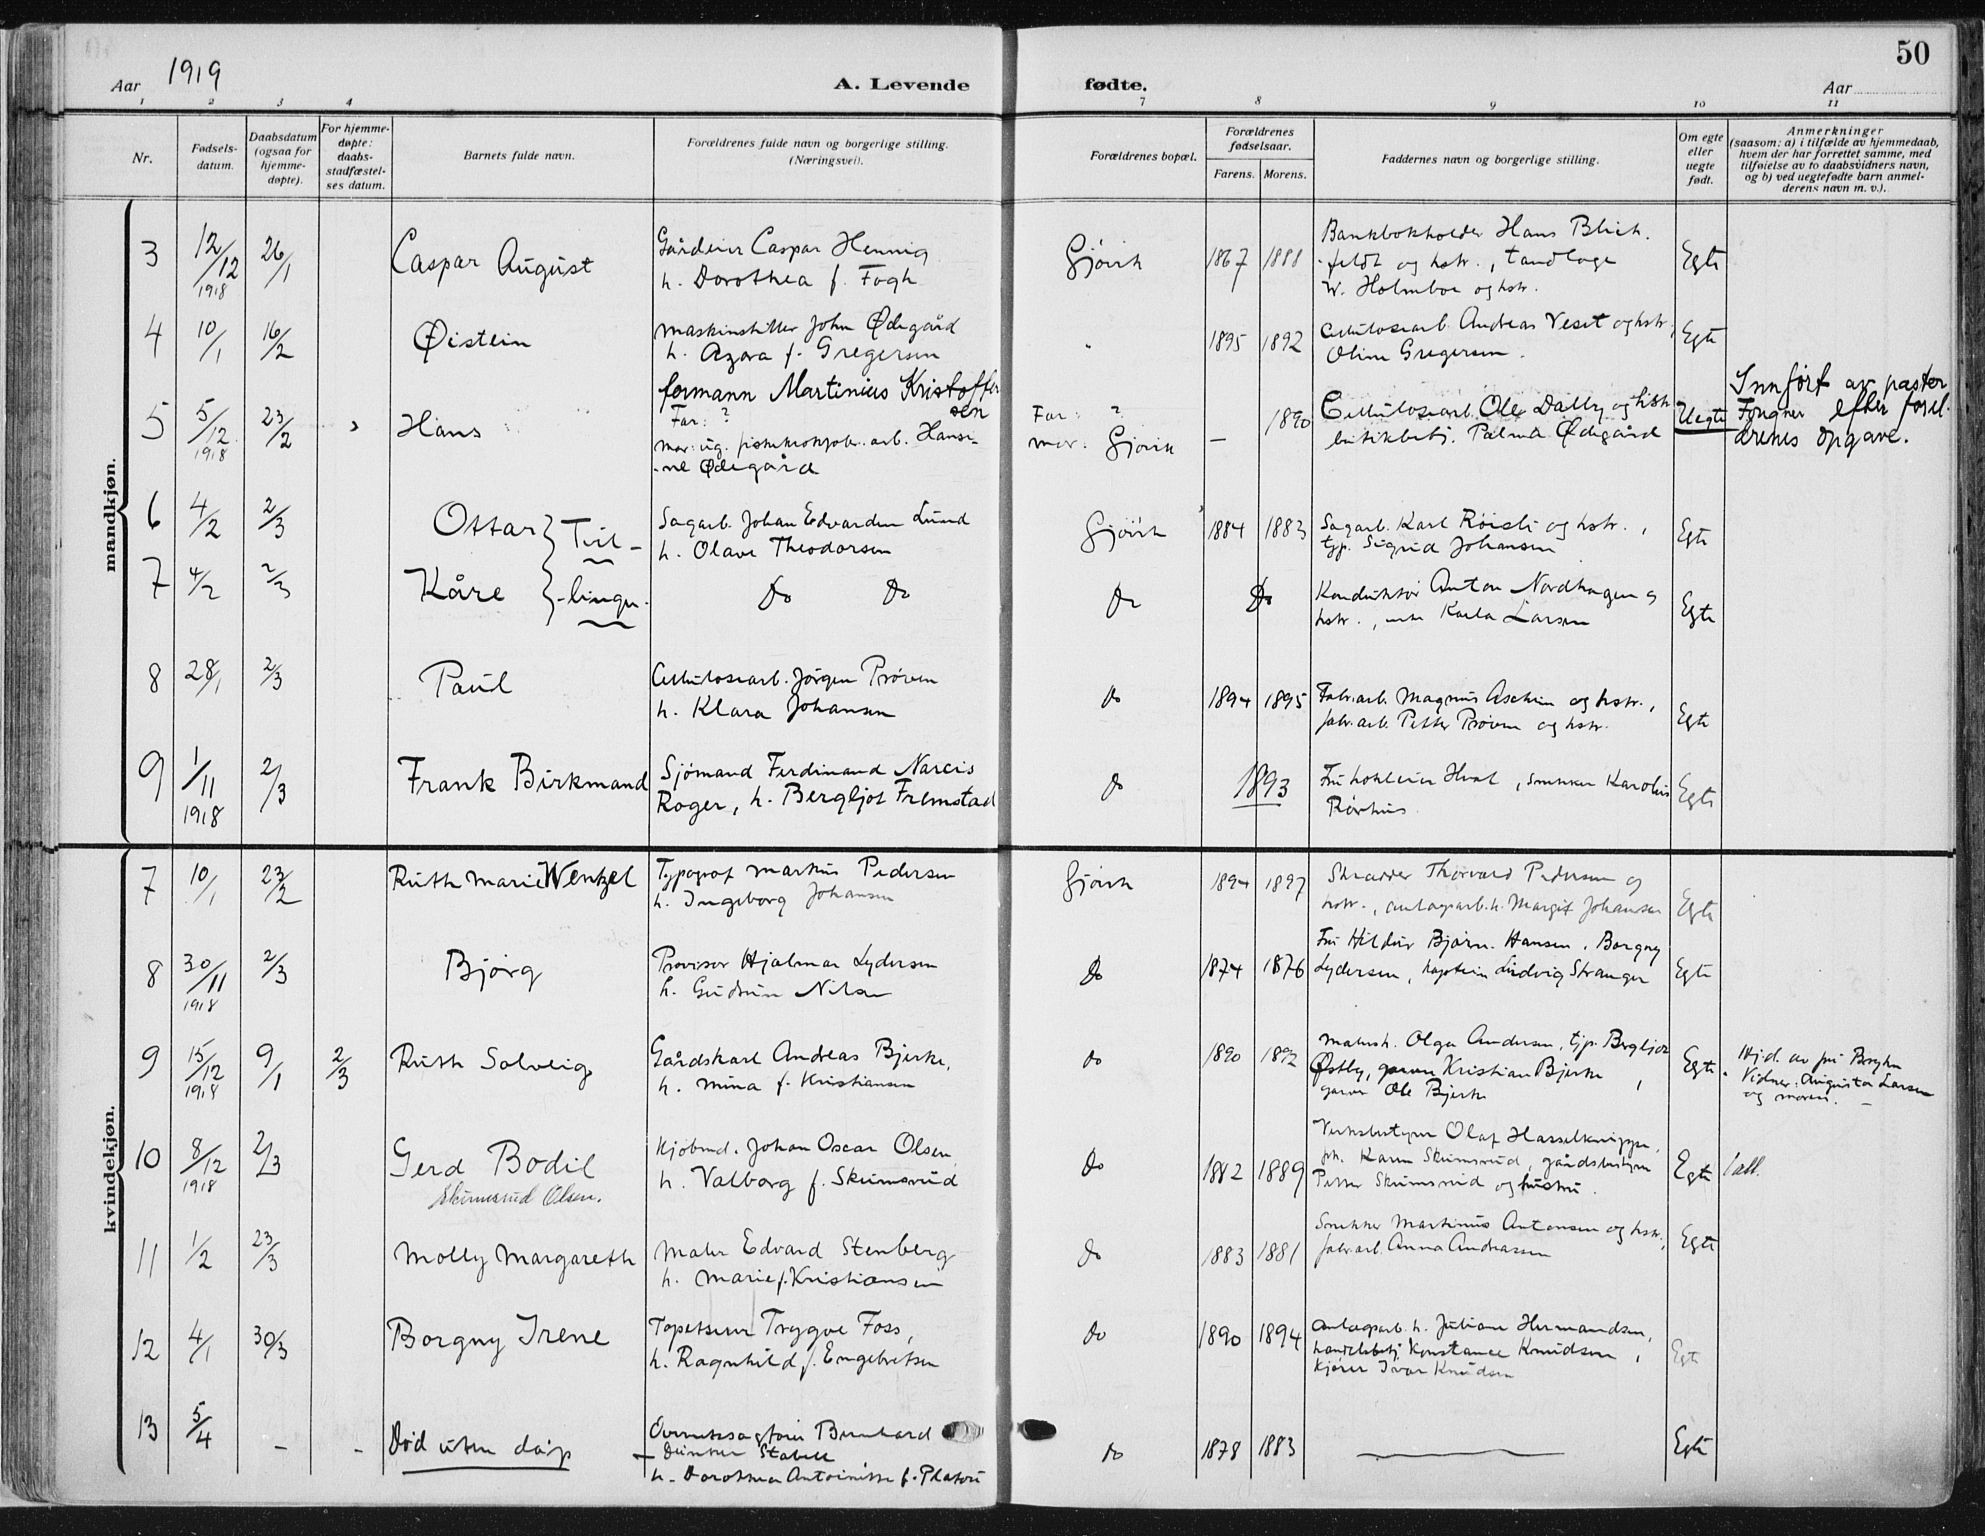 50
Aar 1919
A. Levende fødte.
Aar
1 2 3 4 7 8 9 10 11
Nr.
Fødsels-
datum.
Daabsdatum
(ogsaa for
hjemme-
døpte).
For hjemme-
døpte:
daabs-
stadfæstel-
ses datum.
Barnets fulde navn.
Forældrenes fulde navn og borgerlige stilling.
(Næringsvei).
Forældrenes bopæl.
Forældrenes
fødselsaar.
Farens. Morens.
Faddernes navn og borgerlige stilling.
Om egte
eller
uegte
født.
Anmerkninger
(saasom: a) i tilfælde av hjemmedaab,
hvem der har forrettet samme, med
tilføielse av to daabsvidners navn,
og b) ved uegtefødte barn anmel-
derens navn m. v.).
mandkjøn.
3 12/12 1918 26/1 Caspar August
Caspar Hennig
h. Dorothea f. Fogh
Gjøvik 1867 1888
Bankbokholder Hans Blich-
feldt og hstr., tandlæge
W. Holmboe og hstr.
Egte
4 10/1 16/2 Øistein
Maskinstiller John Ødegård
h. Azora f. Gregersen
" 1895 1892
Cellulosearb. Andreas Veset og hstr,
Oline Gregersen.
Egte
5 5/12 1918 23/2 Hans
formann Martinius Kristoffer
sen
Far: ?
Mor: ug. arb. Hansi-
ne Ødegård
Far: ?
Mor: Gjøvik
— 1890
Cellulosearb. Ole Dalby og hstr
butikbetj. Palma Ødegård
Uegte
Innført av pastor
Fougner efter forel-
drenes opgave.
6 4/2 2/3 Ottar } Tvil-
Sagarb. Johan Edvardsen Lund
h. Olave Theodorsen
Gjøvik 1884 1883
Sagarb. Karl Røisli og hstr.,
typ. Sigrid Johansen
Egte
7 4/2 2/3 Kåre } -linger.
Do Do
Do Do
Konduktør Anton Nordhagen og
hstr., Karla Larsen
Egte
8 28/1 2/3 Paul
Cellulosearb. Jørgen Prøven
h. Klara Johansen
do 1894 1895
Fabr.arb. Magnus Aschim og hstr.,
fabr.arb. Petter Prøven og hstr.
Egte
9 1/11 1918 2/3 Frank Birkmand
Sjømand Ferdinand Narcis
Roger, h. Bergljot Fremstad
do 1893
Hval, snekker Karolius
Rørhus
Egte
kvindekjøn.
7 10/1 23/2 Ruth Marie Wentzel
Typograf Markus Pedersen
h. Ingeborg Johansen
Gjøvik 1894 1897
Skrædder Thorvard Pedersen og
hstr., anlægsarb. h. Margit Johansen
Egte
8 30/11 1918 2/3 Bjørg
Provisor Hjalmar Lydersen
h. Gudrun Nilsen
do 1874 1876
Fru Hildur Bjørn-Hansen, Borgny
Lydersen, kaptein Ludvig Stranger
Egte
9 15/12 1918 9/1 2/3 Ruth Solveig
Gårdskarl Andreas Bjerke,
h. Mina f. Kristiansen
do 1890 1892
Malersh. Olga Andersen, tjp. Bergljot
Østby, garver Kristian Bjerke,
garver Ole Bjerke
Egte.
Hjd. av fru
Vidner: Augusta Larsen
og moren. —
10 8/12 1918 2/3 Gerd Bodil
Skumsrud Olsen.
Kjøbmd. Johan Oscar Olsen,
h. Valborg f. Skumsrud
do 1882 1889
Verksbestyrer Olaf Hasselknippe,
frk. Karen Skumsrud, gårdsbestyrer
Petter Skumsrud og hustru.
Egte
1 att.
11 1/2 23/3 Molly Margareth
Maler Edvard Stenberg
h. Marie f. Kristiansen
do 1883 1881
Snekker Martinius Antonsen og hstr.,
fabr.arb. Anna Andreassen
Egte
12 4/1 30/3 Borgny Irene
Tapetserer Trygve Foss,
h. Ragnhild f. Engebretsen
do 1890 1894
Anlægsarb. h. Juliane Hermandsen,
handelsbetj. Konstance Knudsen,
kjører Ivar Knudsen
Egte
13 5/4 — — Død uten dåp
Overretssagfører Bernhard
Dunker Stabell
h. Dorothea Antoinitte f. Platou
do 1878 1883
—
Egte